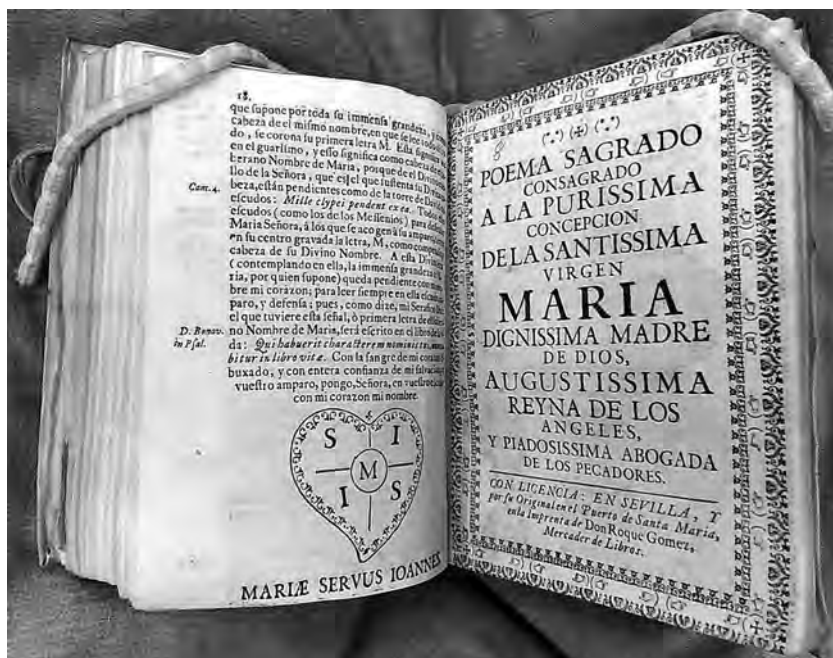 18.
que supone por toda su immensa grandeza, y
cabeza de el mismo nombre, en que se lee todo
do, se corona su primera letra M. Esta significa
en el guarismo, y esso significa como cabeza de
berano Nombre de Maria, porque de el Divino
Cant. 4.
llo de la Señora, que es el que sustenta su Divina
beza, están pendientes como de la torre de David
escudos: Mille clypei pendent ex ea. Todos
escudos (como los de los Messenios) para defensa
Maria Señora, à los que se acogen à su amparo
en su centro gravada la letra, M, como
cabeza de su Divino Nombre. A esta Divina
(contemplando en ella, la immensa grandeza
ria, por quien supone) queda pendiente
bre mi corazon; para leer siempre en ella
paro, y defensa; pues, como dize, mi Serafico
el que tuviere esta señal, ò primera letra de
D. Bonav.
in Psal.
no Nombre de Maria, será escrito en el libro de
da: Qui habuerit characterem nominis tui,
bitur in libro vitæ. Con la sangre de mi corazon
buxado, y con entera confianza de mi salvacion
vuestro amparo, pongo, Señora, en
con mi corazon mi nombre.
S I
M
I S
MARIÆ SERVUS IOANNES
POEMA SAGRADO
CONSAGRADO
A LA PURISSIMA
CONCEPCION
DE LA SANTISSIMA
VIRGEN
MARIA
DIGNISSIMA MADRE
DE DIOS,
AUGUSTISSIMA
REYNA DE LOS
ANGELES,
Y PIADOSISSIMA ABOGADA
DE LOS PECADORES.
CON LICENCIA: EN SEVILLA, Y
por su Original en el Puerto de Santa Maria,
en la Imprenta de Don Roque Gomez,
Mercader de Libros.